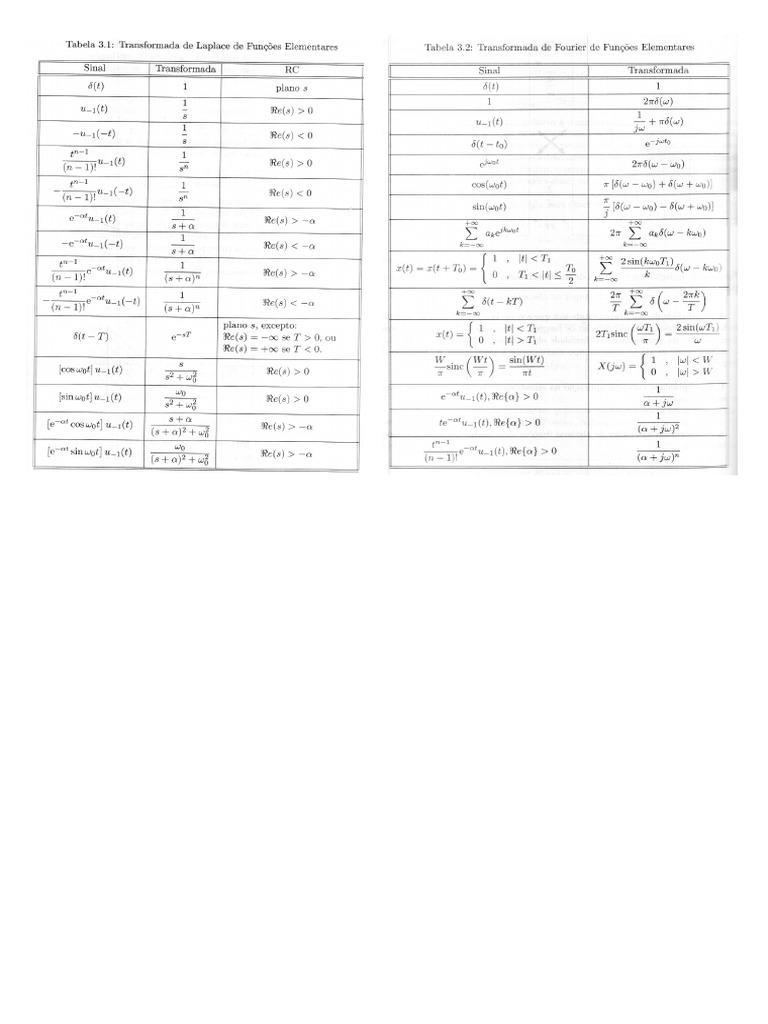 Tabela 3.1: Transformada de Laplace de Funções Elementares
Sinal | Transformada | RC
δ(t) | 1 | plano s
u₋₁(t) | 1/s | ℜe(s) > 0
−u₋₁(−t) | 1/s | ℜe(s) < 0
tⁿ⁻¹/(n − 1)! u₋₁(t) | 1/sⁿ | ℜe(s) > 0
−tⁿ⁻¹/(n − 1)! u₋₁(−t) | 1/sⁿ | ℜe(s) < 0
e^{−αt}u₋₁(t) | 1/(s + α) | ℜe(s) > −α
−e^{−αt}u₋₁(−t) | 1/(s + α) | ℜe(s) < −α
tⁿ⁻¹/(n − 1)! e^{−αt}u₋₁(t) | 1/(s + α)ⁿ | ℜe(s) > −α
−tⁿ⁻¹/(n − 1)! e^{−αt}u₋₁(−t) | 1/(s + α)ⁿ | ℜe(s) < −α
δ(t − T) | e^{−sT} | plano s, excepto:
ℜe(s) = −∞ se T > 0, ou
ℜe(s) = +∞ se T < 0.
[cos ω₀t] u₋₁(t) | s/(s² + ω₀²) | ℜe(s) > 0
[sin ω₀t] u₋₁(t) | ω₀/(s² + ω₀²) | ℜe(s) > 0
[e^{−αt} cos ω₀t] u₋₁(t) | (s + α)/((s + α)² + ω₀²) | ℜe(s) > −α
[e^{−αt} sin ω₀t] u₋₁(t) | ω₀/((s + α)² + ω₀²) | ℜe(s) > −α
Tabela 3.2: Transformada de Fourier de Funções Elementares
Sinal | Transformada
δ(t) | 1
1 | 2πδ(ω)
u₋₁(t) | 1/(jω) + πδ(ω)
δ(t − t₀) | e^{−jωt₀}
e^{jω₀t} | 2πδ(ω − ω₀)
cos(ω₀t) | π [δ(ω − ω₀) + δ(ω + ω₀)]
sin(ω₀t) | π/j [δ(ω − ω₀) − δ(ω + ω₀)]
∑_{k=−∞}^{+∞} a_k e^{jkω₀t} | 2π ∑_{k=−∞}^{+∞} a_k δ(ω − kω₀)
x(t) = x(t + T₀) = { 1 , |t| < T₁ ; 0 , T₁ < |t| ≤ T₀/2 | ∑_{k=−∞}^{+∞} 2 sin(kω₀T₁)/k δ(ω − kω₀)
∑_{k=−∞}^{+∞} δ(t − kT) | 2π/T ∑_{k=−∞}^{+∞} δ(ω − 2πk/T)
x(t) = { 1 , |t| < T₁ ; 0 , |t| > T₁ | 2T₁sinc(ωT₁/π) = 2 sin(ωT₁)/ω
W/π sinc(Wt/π) = sin(Wt)/πt | X(jω) = { 1 , |ω| < W ; 0 , |ω| > W
e^{−αt}u₋₁(t), ℜe{α} > 0 | 1/(α + jω)
te^{−αt}u₋₁(t), ℜe{α} > 0 | 1/(α + jω)²
tⁿ⁻¹/(n − 1)! e^{−αt}u₋₁(t), ℜe{α} > 0 | 1/(α + jω)ⁿ